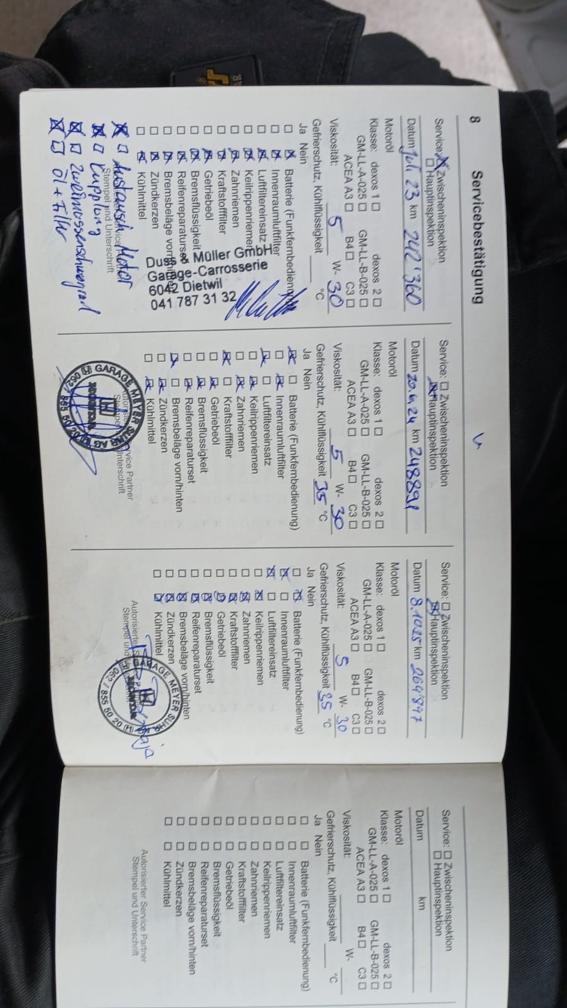 8
Servicebestätigung
Service: ☒ Zwischeninspektion
☐ Hauptinspektion
Datum Juli 23 km 242'360
Motoröl
Klasse: dexos 1 ☐ dexos 2 ☐
GM-LL-A-025 ☐ GM-LL-B-025 ☐
ACEA A3 ☐ B4 ☐ C3 ☐
Viskosität: 5 W- 30
Gefrierschutz, Kühlflüssigkeit °C
Ja Nein
Batterie (Funkfernbedienung)
Innenraumluftfilter
Luftfiltereinsatz
Keilrippenriemen
Zahnriemen
Kraftstofffilter
Getriebeöl
Bremsflüssigkeit
Reifenreparaturset
Bremsbeläge vorn/hinten
Zündkerzen
Kühlmittel
Duss & Müller GmbH
Garage-Carrosserie
6042 Dietwil
041 787 31 32
Stempel und Unterschrift
Austausch Motor
Kupplung
Zweimassenschwungrad
Öl + Filter
Service: ☐ Zwischeninspektion
☒ Hauptinspektion
Datum 20.4.24 km 248891
Motoröl
Klasse: dexos 1 ☐ dexos 2 ☐
GM-LL-A-025 ☐ GM-LL-B-025 ☐
ACEA A3 ☐ B4 ☐ C3 ☐
Viskosität: 5 W- 30
Gefrierschutz, Kühlflüssigkeit 35 °C
Ja Nein
Batterie (Funkfernbedienung)
Innenraumluftfilter
Luftfiltereinsatz
Keilrippenriemen
Zahnriemen
Kraftstofffilter
Getriebeöl
Bremsflüssigkeit
Reifenreparaturset
Bremsbeläge vorn/hinten
Zündkerzen
Kühlmittel
GARAGE MEYER SUHR AG
Service: ☐ Zwischeninspektion
☒ Hauptinspektion
Datum 8.10.25 km 264'897
Motoröl
Klasse: dexos 1 ☐ dexos 2 ☐
GM-LL-A-025 ☐ GM-LL-B-025 ☐
ACEA A3 ☐ B4 ☐ C3 ☐
Viskosität: 5 W- 30
Gefrierschutz, Kühlflüssigkeit 35 °C
Ja Nein
Batterie (Funkfernbedienung)
Innenraumluftfilter
Luftfiltereinsatz
Keilrippenriemen
Zahnriemen
Kraftstofffilter
Getriebeöl
Bremsflüssigkeit
Reifenreparaturset
Bremsbeläge vorn/hinten
Zündkerzen
Kühlmittel
GARAGE MEYER SUHR
855 50 20
Service: ☐ Zwischeninspektion
☐ Hauptinspektion
Datum km
Motoröl
Klasse: dexos 1 ☐ dexos 2 ☐
GM-LL-A-025 ☐ GM-LL-B-025 ☐
ACEA A3 ☐ B4 ☐ C3 ☐
Viskosität: W-
Gefrierschutz, Kühlflüssigkeit °C
Ja Nein
☐ ☐ Batterie (Funkfernbedienung)
☐ ☐ Innenraumluftfilter
☐ ☐ Luftfiltereinsatz
☐ ☐ Keilrippenriemen
☐ ☐ Zahnriemen
☐ ☐ Kraftstofffilter
☐ ☐ Getriebeöl
☐ ☐ Bremsflüssigkeit
☐ ☐ Reifenreparaturset
☐ ☐ Bremsbeläge vorn/hinten
☐ ☐ Zündkerzen
☐ ☐ Kühlmittel
Autorisierter Service Partner
Stempel und Unterschrift